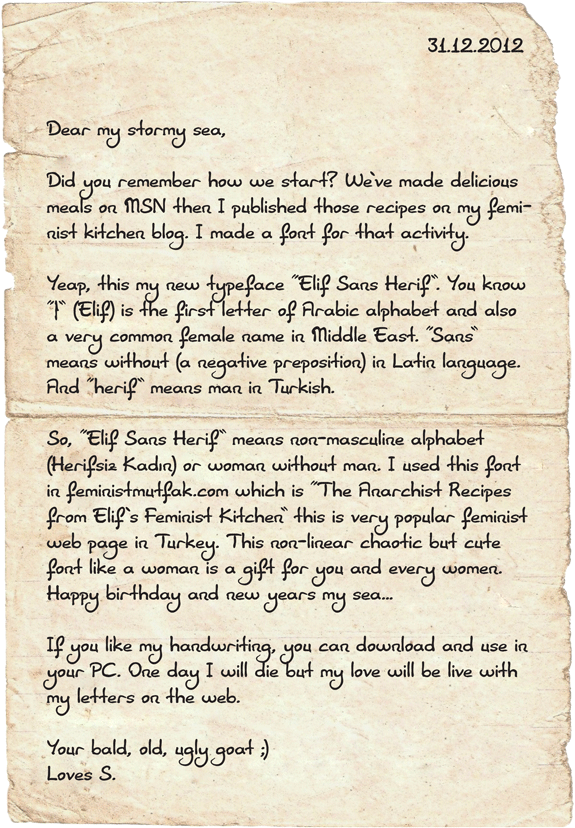 31.12.2012
Dear my stormy sea,
Did you remember how we start? We`ve made delicious
meals on MSN then I published those recipes on my femi-
nist kitchen blog. I made a font for that activity.
Yeap, this my new typeface "Elif Sans Herif". You know
"ا" (Elif) is the first letter of Arabic alphabet and also
a very common female name in Middle East. "Sans"
means without (a negative preposition) in Latin language.
And "herif" means man in Turkish.
So, "Elif Sans Herif" means non-masculine alphabet
(Herifsiz Kadın) or woman without man. I used this font
in feministmutfak.com which is "The Anarchist Recipes
from Elif`s Feminist Kitchen" this is very popular feminist
web page in Turkey. This non-linear chaotic but cute
font like a woman is a gift for you and every women.
Happy birthday and new years my sea...
If you like my handwriting, you can download and use in
your PC. One day I will die but my love will be live with
my letters on the web.
Your bald, old, ugly goat ;)
Loves S.